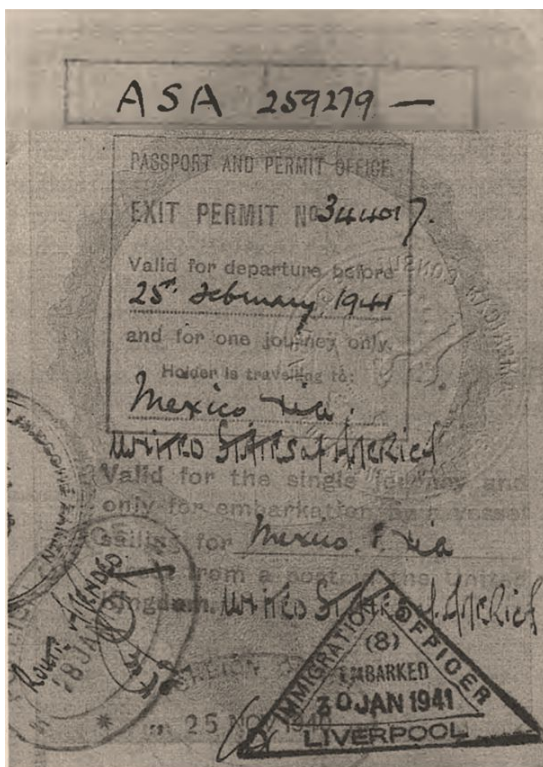 ASA 259279 —
PASSPORT AND PERMIT OFFICE
EXIT PERMIT No 344017.
Valid for departure before
25th February, 1941
and for one journey only.
Holder is travelling to:
Mexico via.
United States of America
Valid for the single journey and
only for embarkation by a vessel
sailing for Mexico. via
from a port in the United
Kingdom. United States of America
ROUTE AMENDED
18 JAN
FOREIGN
25 NOV 1940
IMMIGRATION OFFICER
(8)
EMBARKED
30 JAN 1941
LIVERPOOL